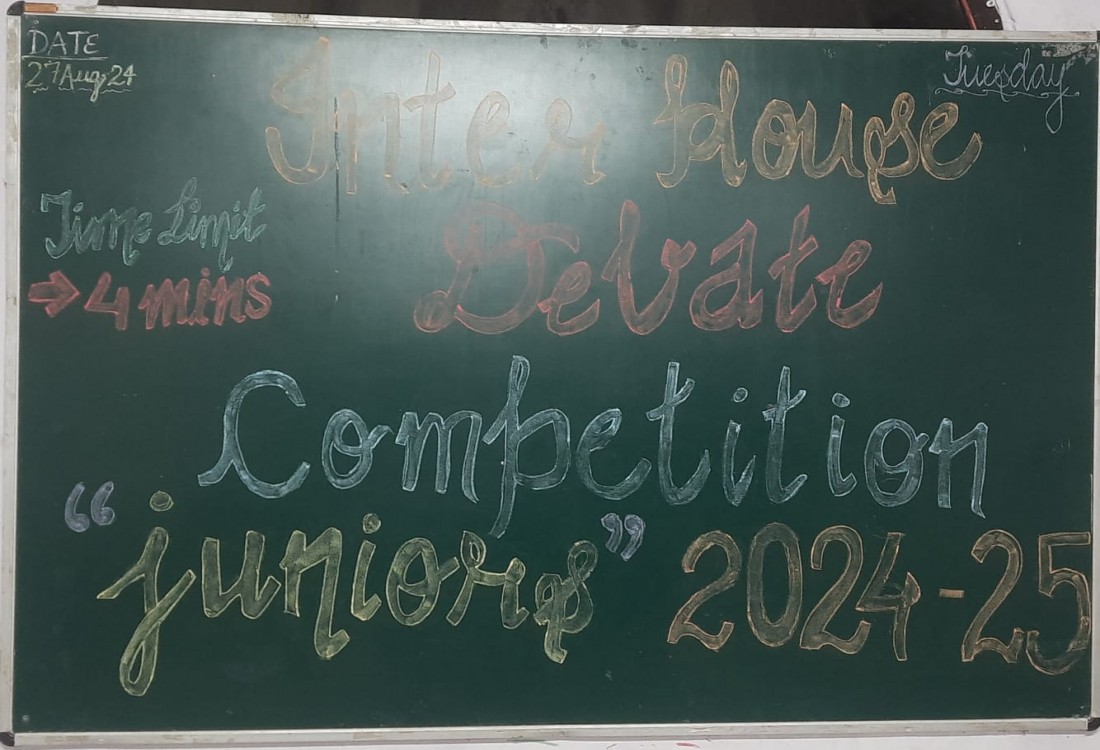 DATE
27 Aug, 24
Tuesday
Inter House
Time Limit
→ 4 mins
Debate
Competition
“juniors” 2024-25